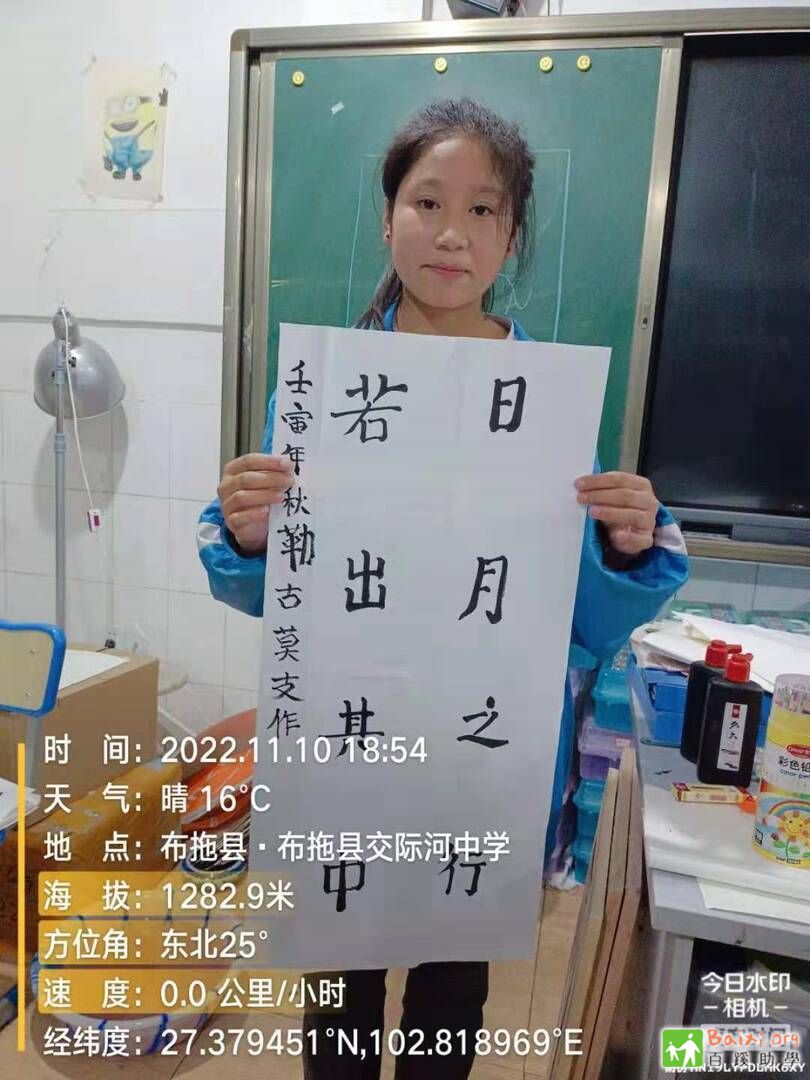 日月之行
若出其中
壬寅年秋勒古莫支作
时 间：2022.11.10 18:54
天 气：晴 16°C
地 点：布拖县·布拖县交际河中学
海 拔：1282.9米
方位角：东北25°
速 度：0.0 公里/小时
经纬度：27.379451°N,102.818969°E
彩色铅
color pen
今日水印
-相机-
Baixi.Org
百蹊助學